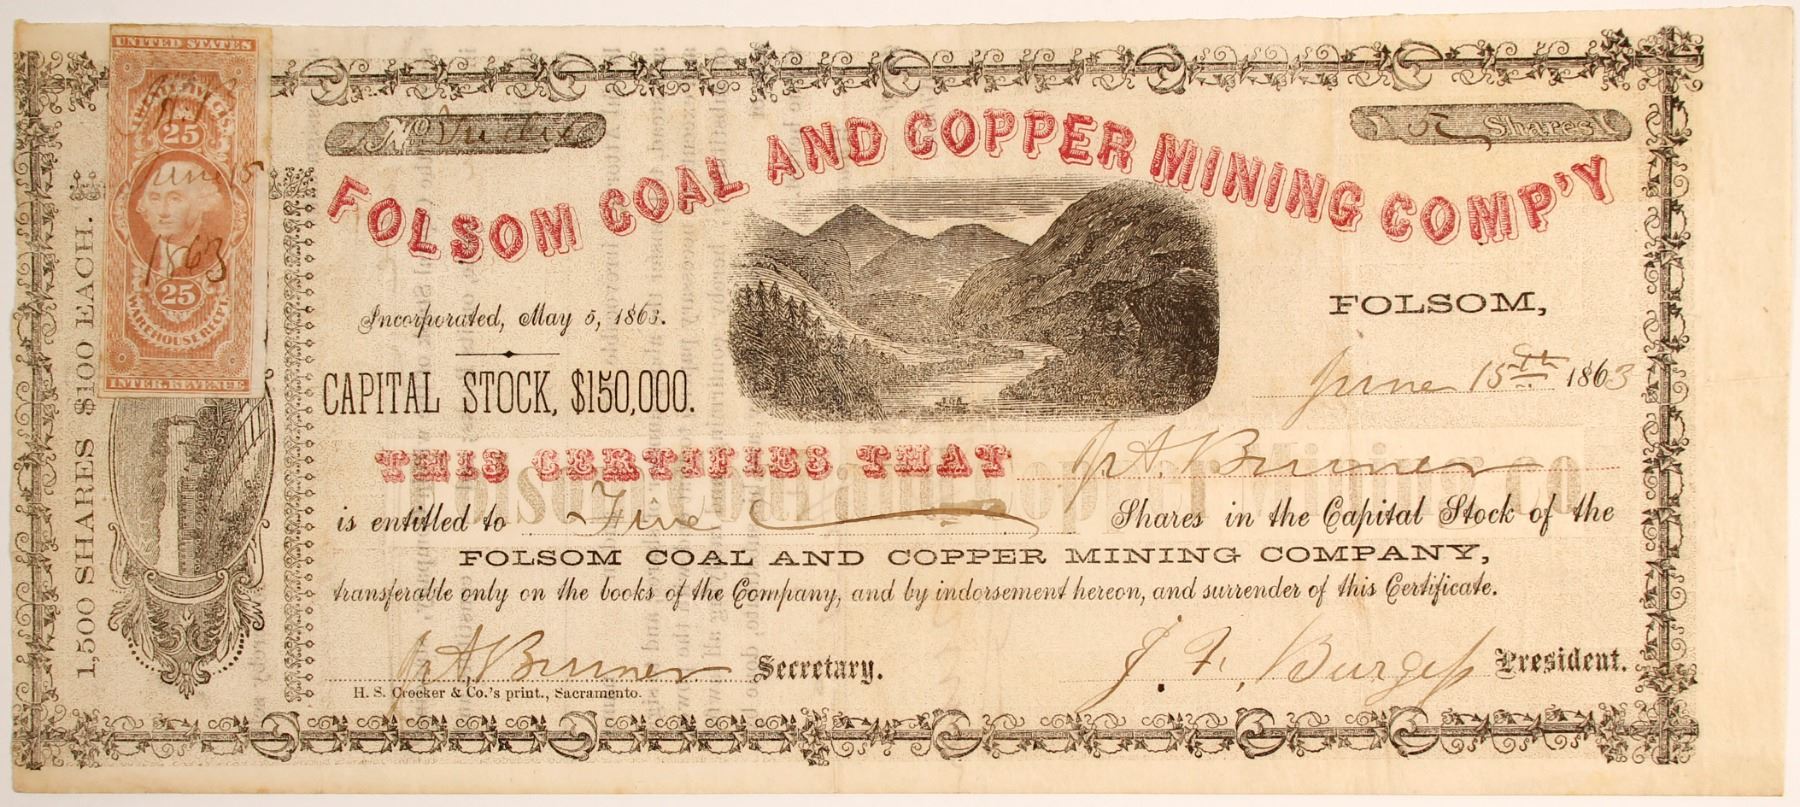 UNITED STATES
25
June 15
1863
25
WAREHOUSE RECEIPT
INTER. REVENUE
1,500 SHARES $100 EACH.
No.
5 Shares
FOLSOM COAL AND COPPER MINING COMP'Y
Incorporated, May 5, 1863.
CAPITAL STOCK, $150,000.
FOLSOM,
June 15th 1863
THIS CERTIFIES THAT
Folsom Coal and Copper Mining Co
is entitled to Five Shares in the Capital Stock of the
FOLSOM COAL AND COPPER MINING COMPANY,
transferable only on the books of the Company, and by indorsement hereon, and surrender of this Certificate.
Secretary.
J. F. Burgess President.
H. S. Crocker & Co.'s print., Sacramento.